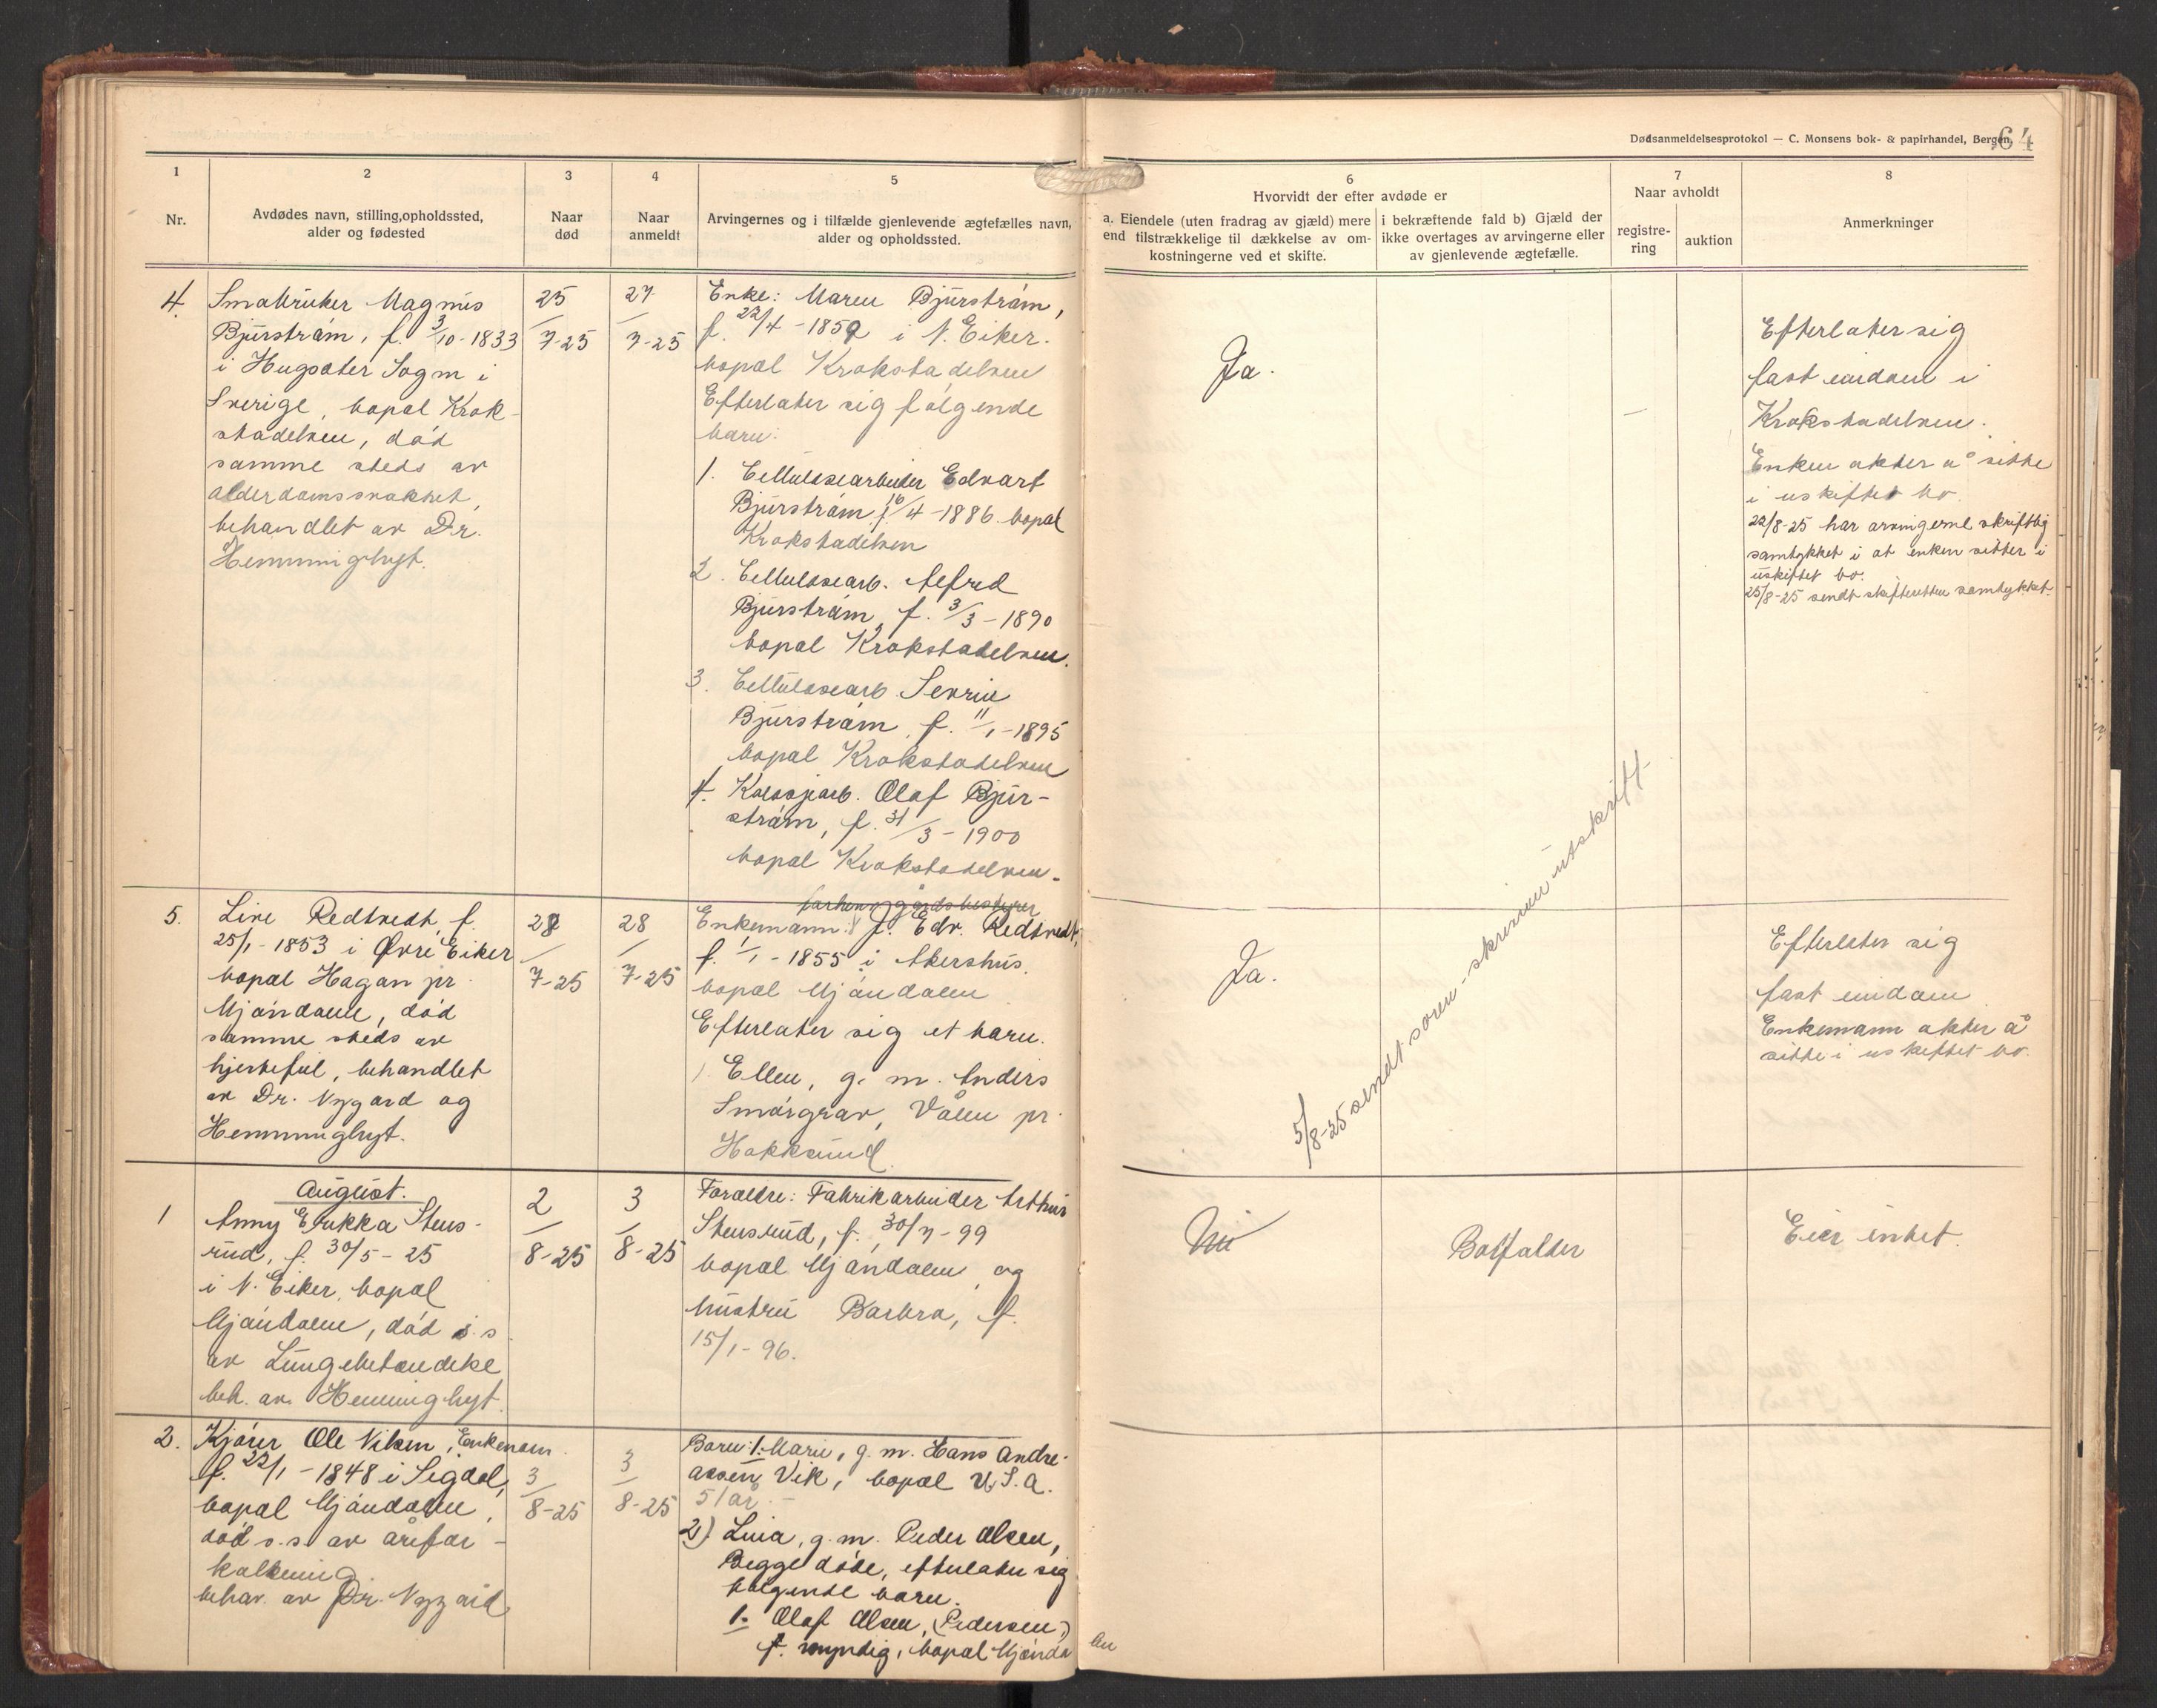 Dødsanmeldelsesprotokol — C. Monsens bok- & papirhandel, Bergen.
64
1
Nr.
2
Avdødes navn, stilling, opholdssted,
alder og fødested
3
Naar
død
4
Naar
anmeldt
5
Arvingernes og i tilfælde gjenlevende ægtefælles navn,
alder og opholdssted.
6
Hvorvidt der efter avdøde er
a. Eiendele (uten fradrag av gjæld) mere
end tilstrækkelige til dækkelse av om-
kostningerne ved et skifte.
i bekræftende fald b) Gjæld der
ikke overtages av arvingerne eller
av gjenlevende ægtefælle.
7
Naar avholdt
registre-
ring
auktion
8
Anmerkninger
4.
Småbruker Magnus
Bjurstrøm, f. 3/10-1833
i Hugsæter Sogn i
Sverige, bopæl Krok-
stadelven, død
samme steds av
alderdomssvakhet,
behandlet av Dr.
Hemminghyt.
25/7-25
27/7-25
Enke: Maren Bjurstrøm,
f. 22/4-1859 i N. Eiker.
bopæl Krokstadelven
Efterlater sig følgende
barn:
1. Cellulosearbeider Edvart
Bjurstrøm f. 16/4-1886 bopæl
Krokstadelven
2. Cellulosearb. Alfred
Bjurstrøm, f. 3/3-1890
bopæl Krokstadelven.
3. Cellulosearb. Sevrin
Bjurstrøm, f. 11/1-1895
bopæl Krokstadelven
4. Olaf Bjur-
strøm, f. 31/3-1900
bopæl Krokstadelven.
Ja.
—
Efterlater sig
fast eiendom i
Krokstadelven.
Enken akter å sitte
i uskiftet bo.
22/8-25 har arvingerne skriftlig
samtykket i at enken sitter i
uskiftet bo.
25/8-25 sendt skifteretten samtykket.
5.
Live Redtvedt, f.
25/1-1853 i Øvre Eiker
bopæl Hagan pr
Mjøndalen, død
samme steds av
hjertefeil, behandlet
av Dr. Nygård og
Hemminghyt.
28/7-25
28/7-25
forhenv. gårdsbestyrer
Enkemann: J. Edv. Redtvedt,
f. 1/1-1855 i Akershus.
bopæl Mjøndalen
Efterlater sig et barn.
1. Ellen, g. m. Anders
Smørgrav, Vålen pr.
Hokksund.
Ja.
5/8-25 sendt soren-skriveren utskrift
Efterlater sig
fast eiendom
Enkemann akter å
sitte i uskiftet bo.
August.
1
Anny Erikka Stens-
rud, f. 30/5-25
i N. Eiker, bopæl
Mjøndalen, død s.s
av Lungebetændelse
beh. av Hemminghyt.
2/8-25
3/8-25
Forældre: Fabrikarbeider Arthur
Stensrud, f. 30/7-99
bopæl Mjøndalen og
hustru Barbra, f.
15/1-96.
Nei
Bortfalder
Eier intet.
2.
Kjører Ole Nilsen, Enkemann.
f. 22/1-1848 i Sigdal,
bopæl Mjøndalen,
død s.s. av årefor-
kalkning
behan. av Dr. Nygård
3/8-25
3/8-25
Barn: 1. Marie, g. m. Hans Andre-
assen Vik, bopæl U.S.A.
51 år.-
2). Lina, g. m. Peder Olsen,
Begge døde, efterlater sig
følgende barn.
1. Olaf Olsen, (Pedersen,)
f. myndig, bopæl Mjøndalen